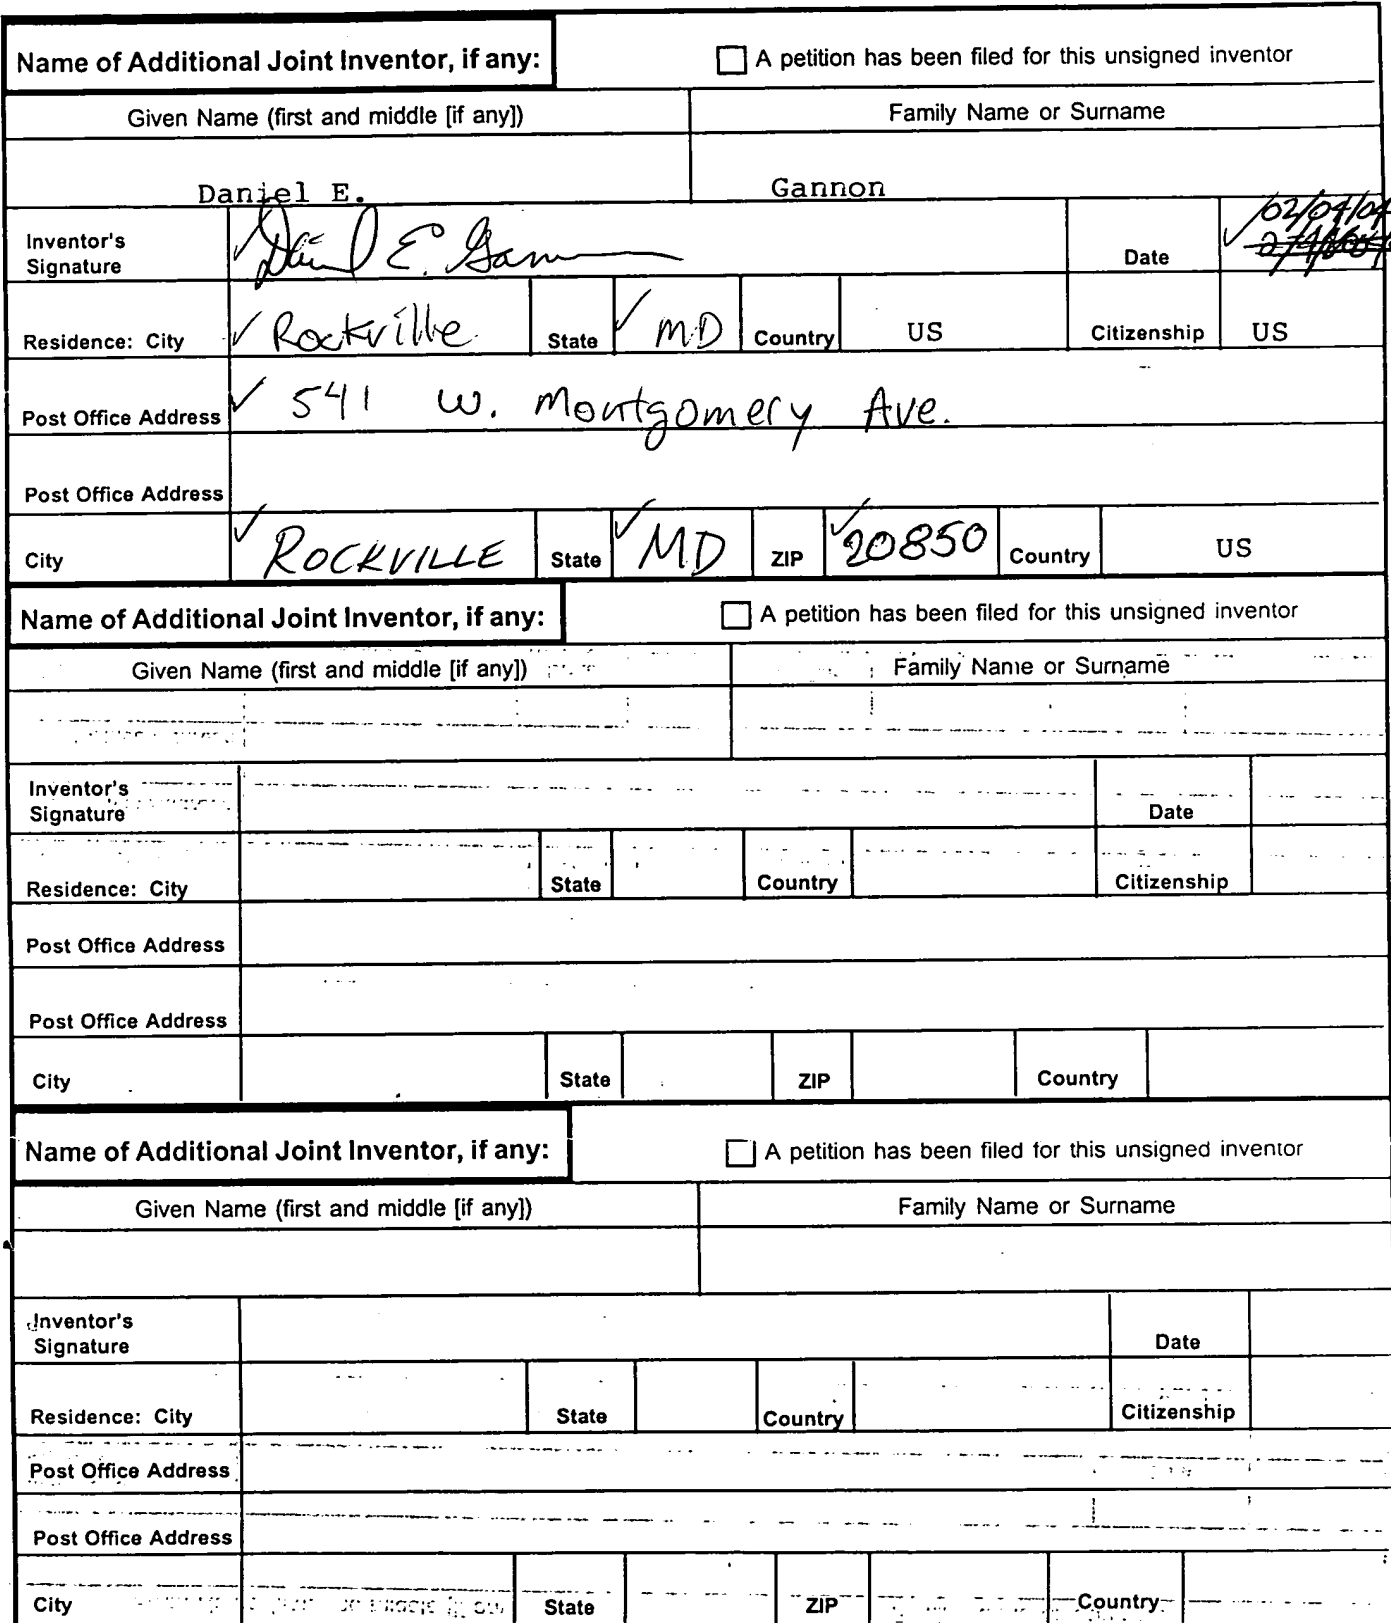 Name of Additional Joint Inventor, if any: A petition has been filed for this unsigned inventor
Given Name (first and middle [if any]) Family Name or Surname
Daniel E. Gannon
02/04/04
Inventor's
Signature Daniel E. Gannon Date
Residence: City Rockville State MD Country US Citizenship US
Post Office Address 541 W. Montgomery Ave.
Post Office Address
City ROCKVILLE State MD ZIP 20850 Country US
Name of Additional Joint Inventor, if any: A petition has been filed for this unsigned inventor
Given Name (first and middle [if any]) Family Name or Surname
Inventor's
Signature Date
Residence: City State Country Citizenship
Post Office Address
Post Office Address
City State ZIP Country
Name of Additional Joint Inventor, if any: A petition has been filed for this unsigned inventor
Given Name (first and middle [if any]) Family Name or Surname
Inventor's
Signature Date
Residence: City State Country Citizenship
Post Office Address
Post Office Address
City State ZIP Country